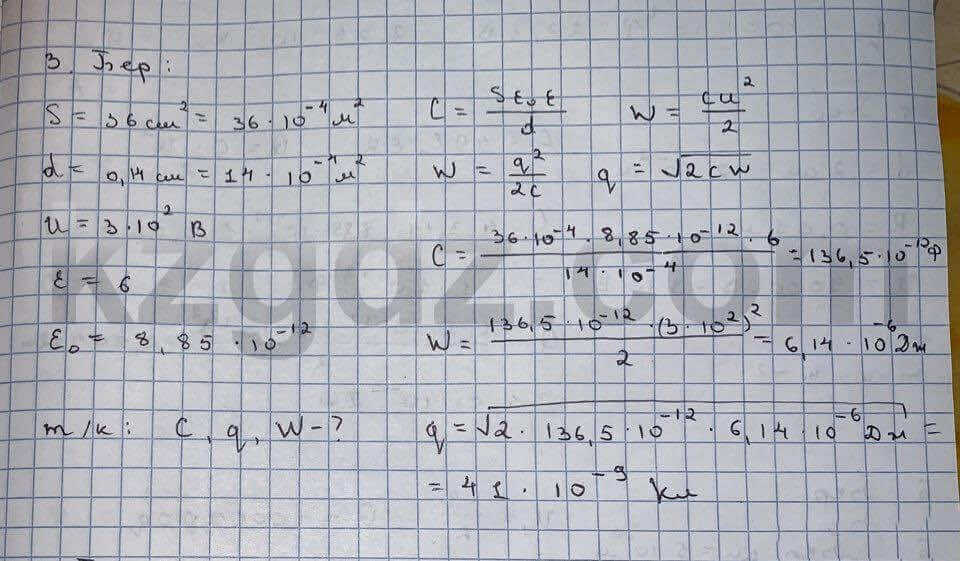 3. Бер:
S = 36 см² = 36 · 10⁻⁴ м²
d = 0,14 см = 14 · 10⁻⁴ м²
U = 3 · 10² В
ε = 6
ε₀ = 8,85 · 10⁻¹²
т/к: C, q, W - ?
C = Sε₀ε/d W = CU²/2
W = q²/2C q = √2CW
C = 36 · 10⁻⁴ · 8,85 · 10⁻¹² · 6 / 14 · 10⁻⁴ = 136,5 · 10⁻¹²Ф
W = 136,5 · 10⁻¹² · (3 · 10²)² / 2 = 6,14 · 10⁻⁶ Дж
q = √2 · 136,5 · 10⁻¹² · 6,14 · 10⁻⁶ Дж =
= 41 · 10⁻⁹ Кл
kzgdz.com